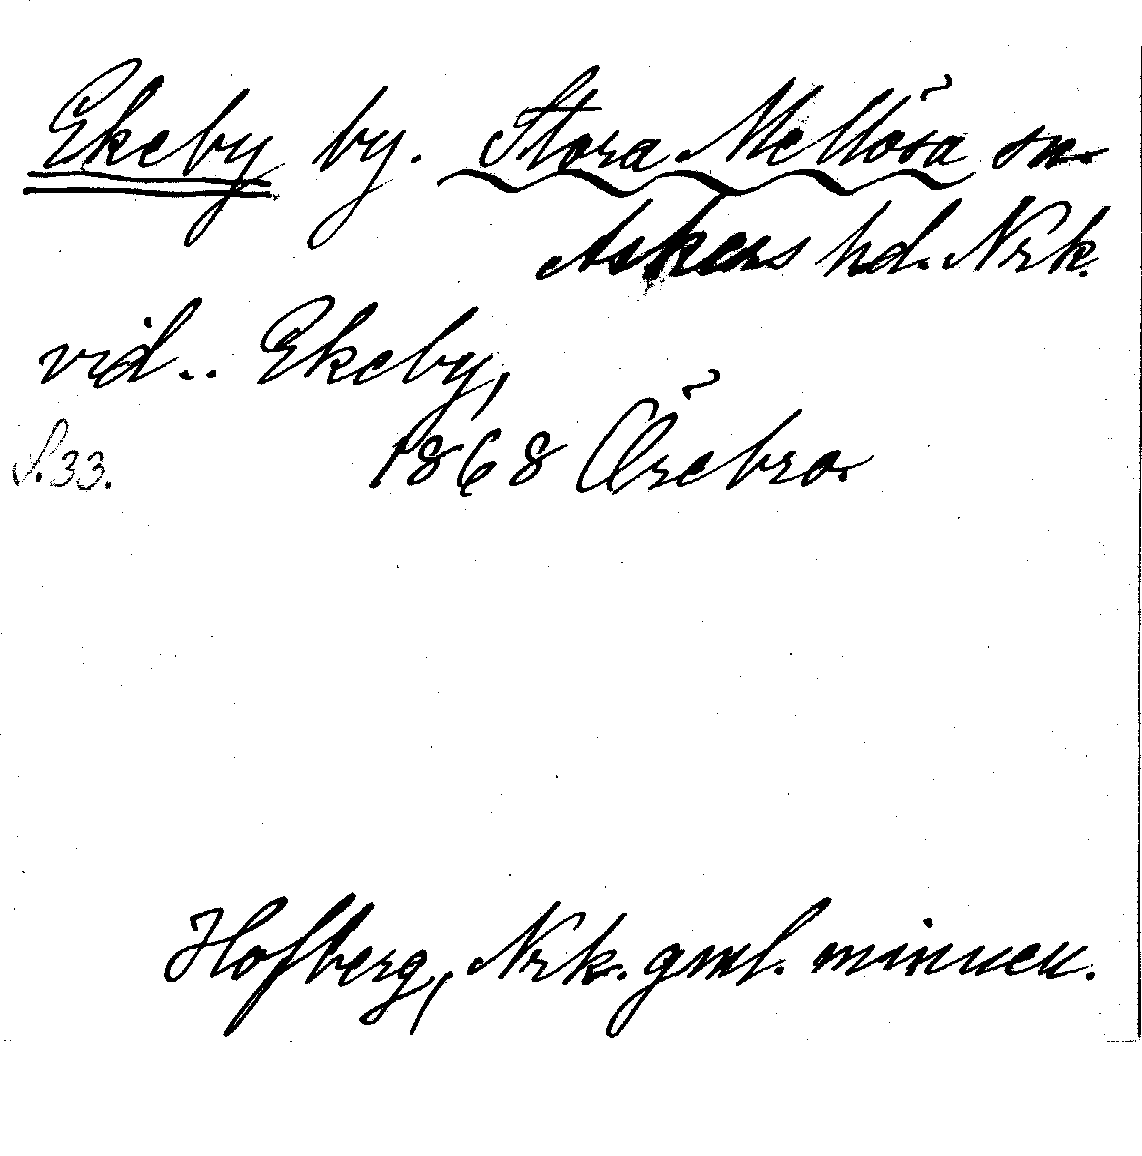 Ekeby by. Stora Mellösa sn.
Askers hd. Nrk.
vid.. Ekeby,
S. 33. 1868 Örebro.
Hofberg, Nrk. gml. minnen.